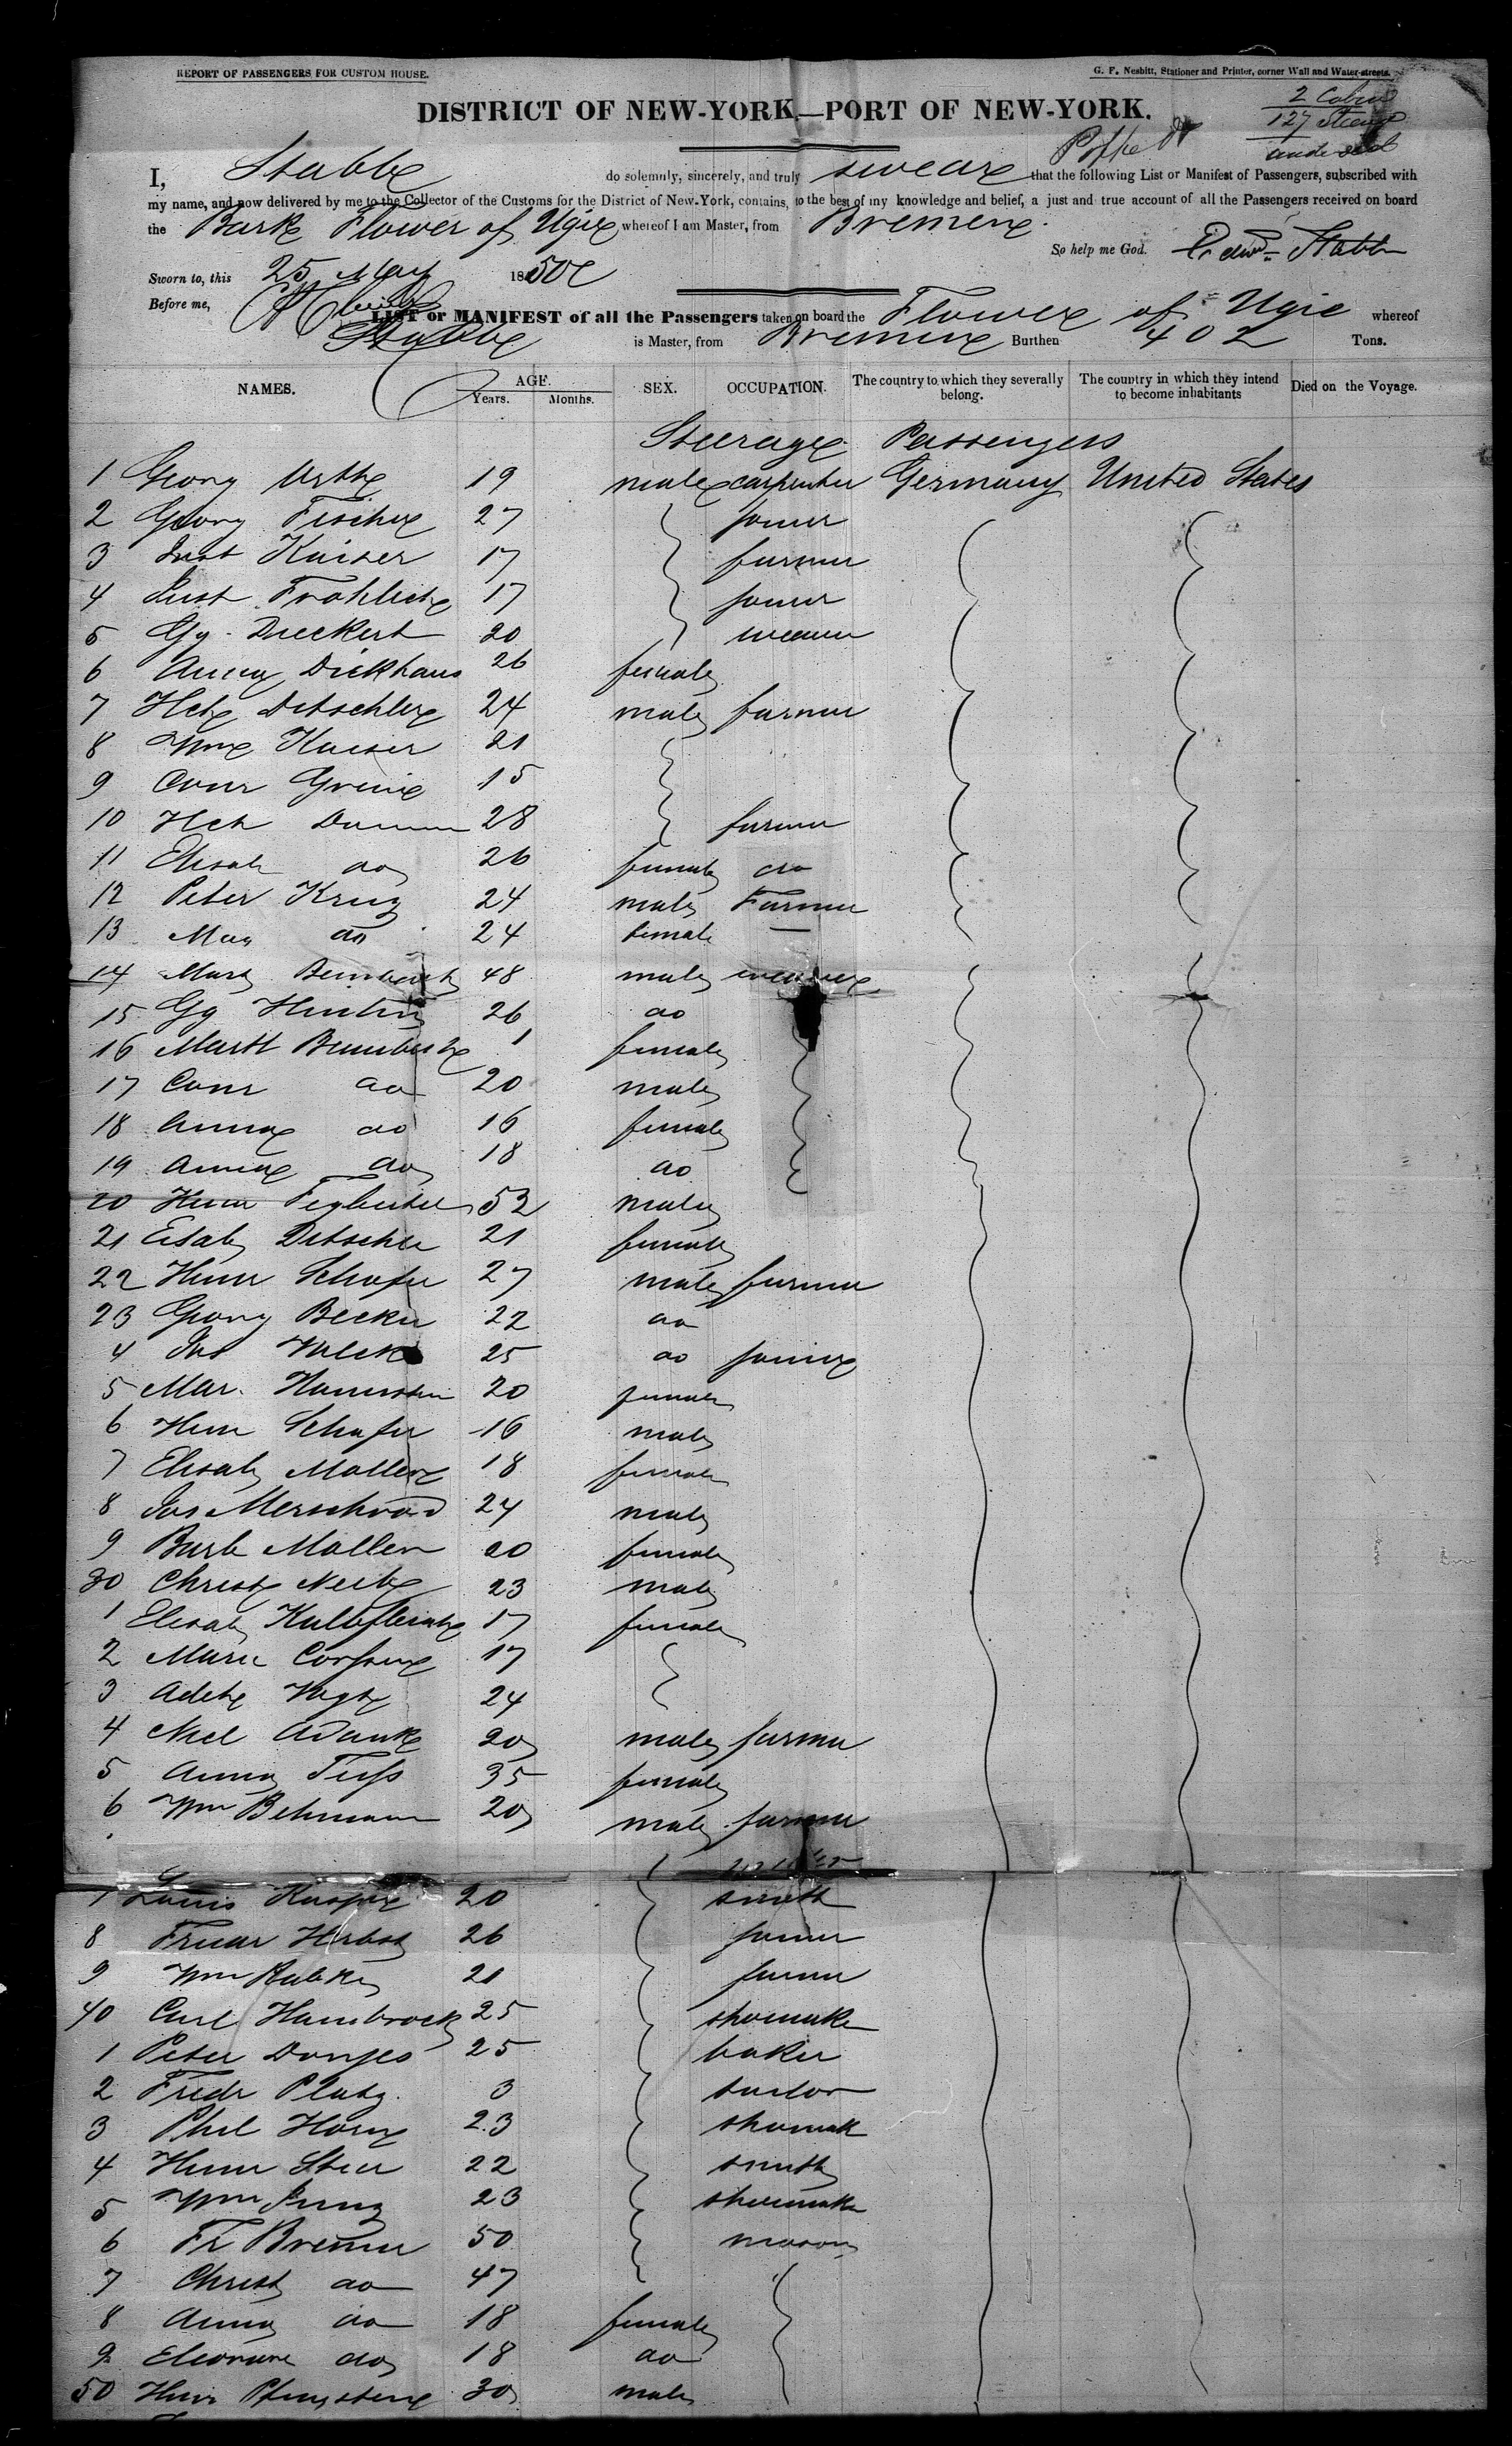 REPORT OF PASSENGERS FOR CUSTOM HOUSE.
G. F. Nesbitt, Stationer and Printer, corner Wall and Water-streets.
2 Cabin
127 Steerage
DISTRICT OF NEW-YORK.—PORT OF NEW-YORK.
I, Stabbe do solemnly, sincerely, and truly swear that the following List or Manifest of Passengers, subscribed with
my name, and now delivered by me to the Collector of the Customs for the District of New-York, contains, to the best of my knowledge and belief, a just and true account of all the Passengers received on board
the Bark Flower of Ugie whereof I am Master, from Bremen.
So help me God. Stabbe
Sworn to, this 25 May 1850
Before me,
LIST or MANIFEST of all the Passengers taken on board the Flower of Ugie whereof
Stabbe is Master, from Bremen Burthen 402 Tons.
NAMES. AGE. Years. Months. SEX. OCCUPATION. The country to which they severally belong. The country in which they intend to become inhabitants Died on the Voyage.
Steerage Passengers
1 Georg 19 male carpenter Germany United States
2 Georg Fischer 27 joiner
3 Just Kaiser 17 farmer
4 Just Frohlich 17 joiner
5 Gg. Dieckert 20 weaver
6 Anna Dickhaus 26 female
7 Hch Ditschler 24 male farmer
8 Wm Kaiser 21
9 Conr Grein 15
10 Hch Damm 28 farmer
11 Elisab do 26 female do
12 Peter Krug 24 male Farmer
13 Mag do 24 female —
14 48 male weaver
15 Gg 26 do
16 1 female
17 Conr do 20 male
18 Anna do 16 female
19 do 18 do
20 Henr 52 male
21 Elsab Ditschler 21 female
22 Henr Schafer 27 male farmer
23 Georg Becker 22 do
4 25 do joiner
5 Mar. 20 female
6 Henr Schafer 16 male
7 Elisab Moller 18 female
8 Jos 24 male
9 Barb Moller 20 female
30 Christ 23 male
1 Elisab Kalbfleisch 17 female
2 Marie 17
3 24
4 20 male farmer
5 Anna 35 female
6 Wm Behmann 20 male farmer
7 Louis Kasper 20 smith
8 Friedr Herbst 26 joiner
9 Wm 21 farmer
40 Carl Hambrock 25 shoemaker
1 Peter Donges 25 baker
2 Friedr Platz. 3 tailor
3 Phil Horn 23 shoemak
4 Henr 22 smith
5 Wm Jung 23 shoemaker
6 Fr Bremer 50 mason
7 Christ do 47
8 Anna do 18 female
9 Eleonore do 18 do
50 Henr Pfingsten 30 male